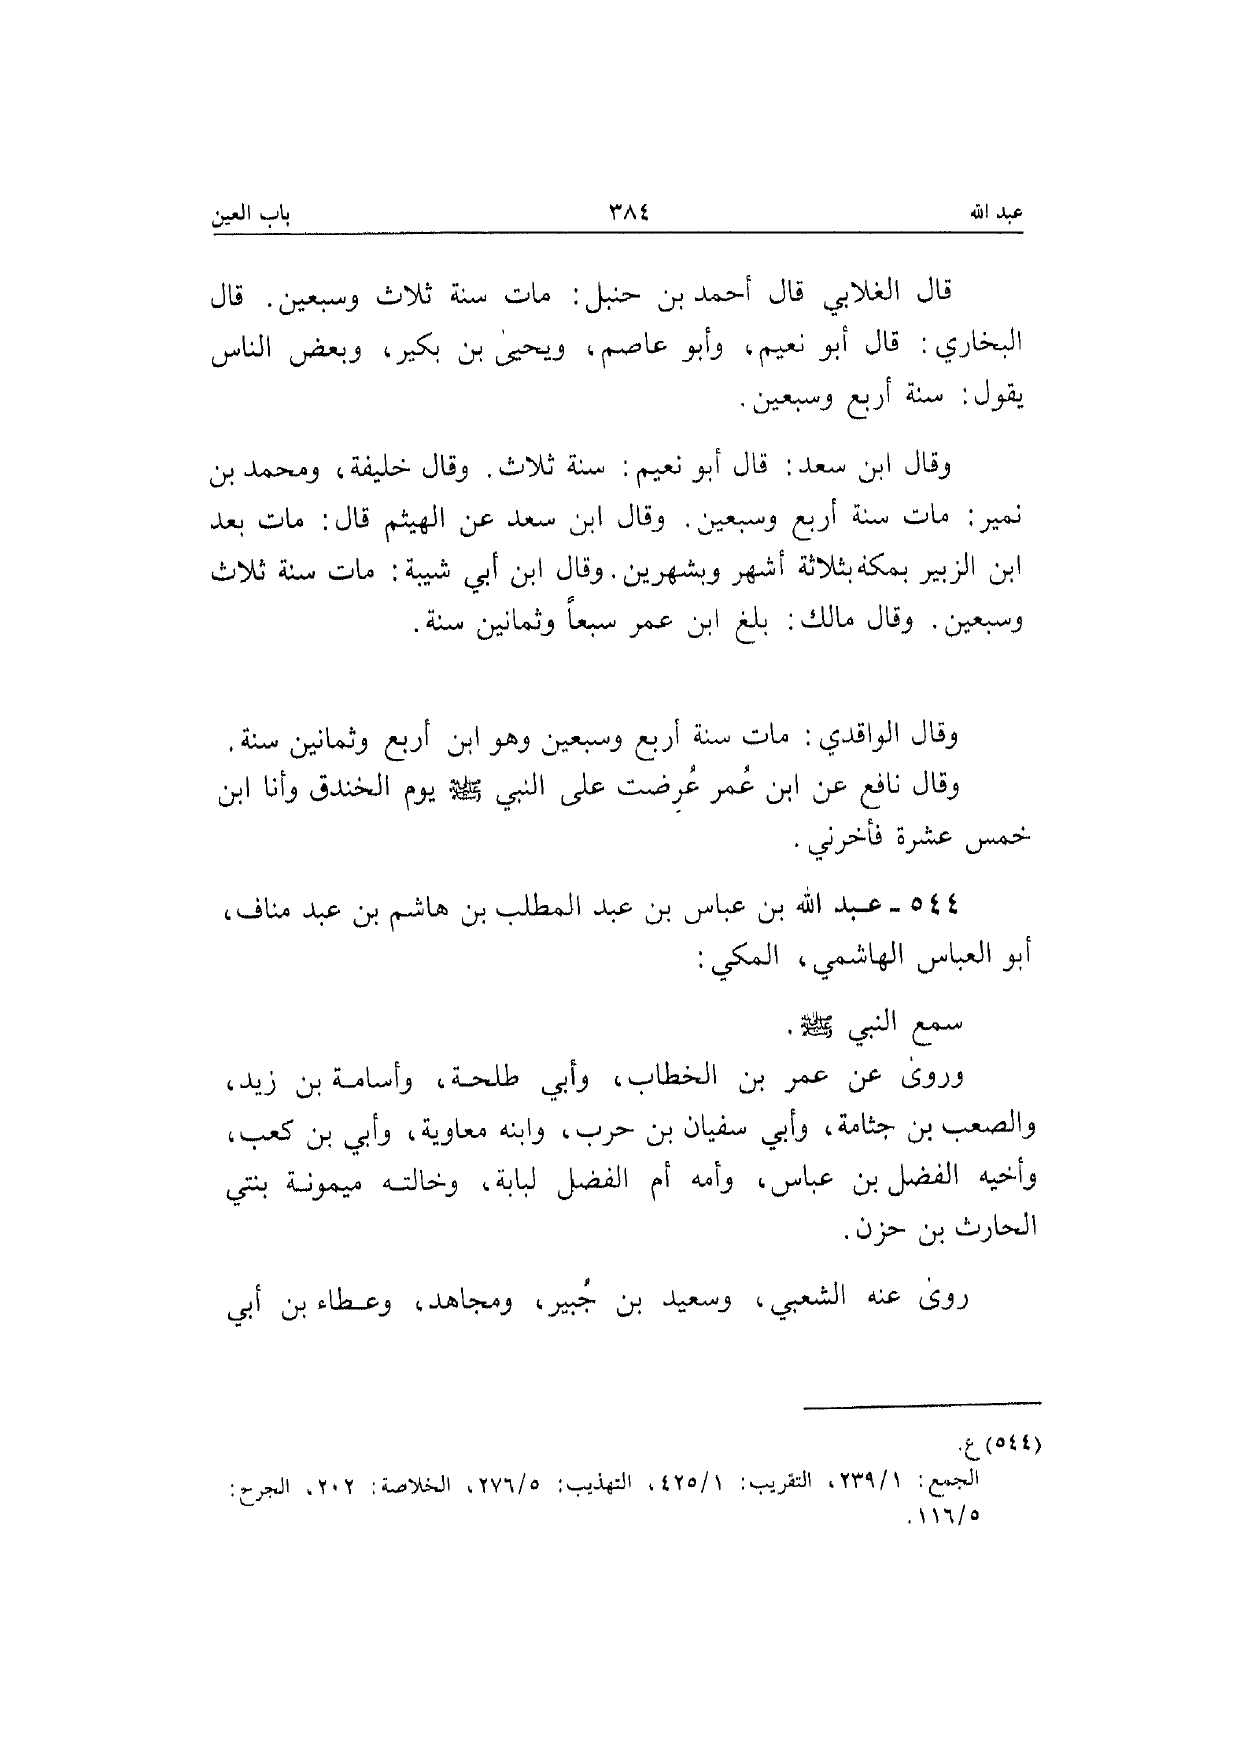 عبد الله ٣٨٤ باب العين
قال الغلابي قال أحمد بن حنبل: مات سنة ثلاث وسبعين. قال
البخاري: قال أبو نعيم، وأبو عاصم، ويحيىٰ بن بكير، وبعض الناس
يقول: سنة أربع وسبعين.
وقال ابن سعد: قال أبو نعيم: سنة ثلاث. وقال خليفة، ومحمد بن
نمير: مات سنة أربع وسبعين. وقال ابن سعد عن الهيثم قال: مات بعد
ابن الزبير بمكة بثلاثة أشهر وبشهرين. وقال ابن أبي شيبة: مات سنة ثلاث
وسبعين. وقال مالك: بلغ ابن عمر سبعاً وثمانين سنة.
وقال الواقدي: مات سنة أربع وسبعين وهو ابن أربع وثمانين سنة.
وقال نافع عن ابن عُمر عُرِضت على النبي ﷺ يوم الخندق وأنا ابن
خمس عشرة فأخرني.
٥٤٤ - عبد الله بن عباس بن عبد المطلب بن هاشم بن عبد مناف،
أبو العباس الهاشمي، المكي:
سمع النبي ﷺ.
وروىٰ عن عمر بن الخطاب، وأبي طلحة، وأسامة بن زيد،
والصعب بن جثامة، وأبي سفيان بن حرب، وابنه معاوية، وأبي بن كعب،
وأخيه الفضل بن عباس، وأمه أم الفضل لبابة، وخالته ميمونة بنتي
الحارث بن حزن.
روىٰ عنه الشعبي، وسعيد بن جُبير، ومجاهد، وعطاء بن أبي
(٥٤٤) ع.
الجمع: ٢٣٩/١، التقريب: ٤٢٥/١، التهذيب: ٢٧٦/٥، الخلاصة: ٢٠٢، الجرح:
١١٦/٥.